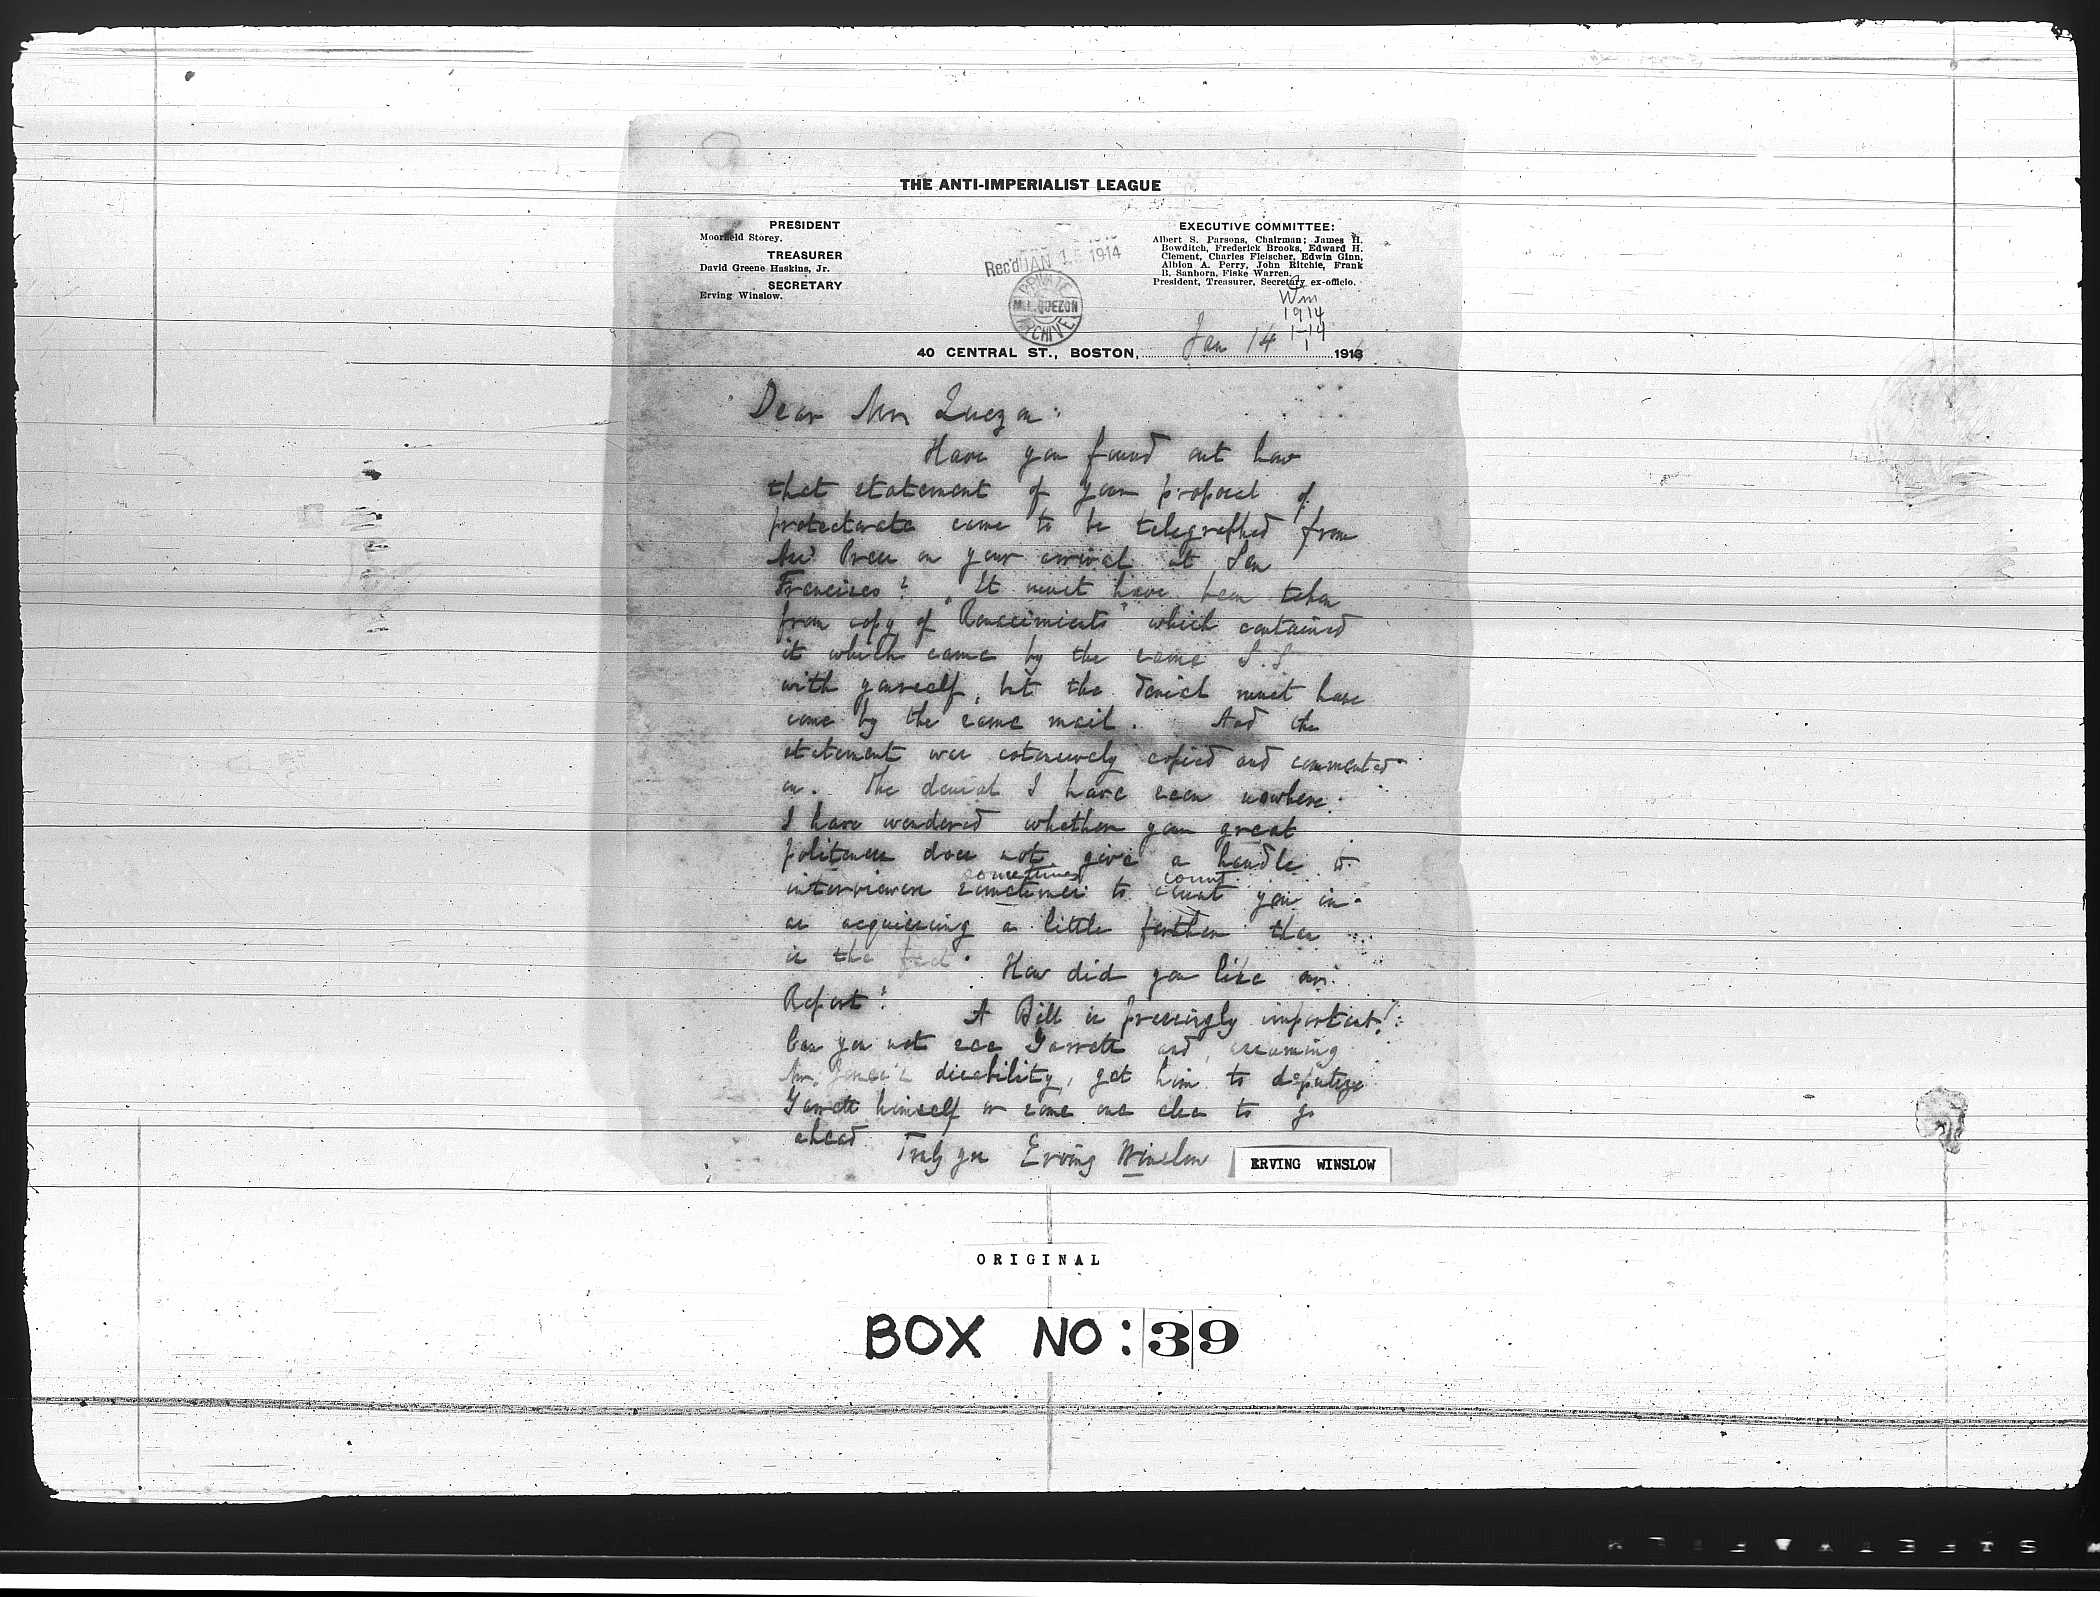 THE ANTI-IMPERIALIST LEAGUE
PRESIDENT
Moorfield Storey.
TREASURER
David Greene Haskins, Jr.
SECRETARY
Erving Winslow.
EXECUTIVE COMMITTEE:
Albert S. Parsons, Chairman; James H.
Bowditch, Frederick Brooks, Edward H.
Clement, Charles Fleischer, Edwin Ginn,
Albion A. Perry, John Ritchie, Frank
B. Sanborn, Fiske Warren.
President, Treasurer, Secretary ex-officio.
Rec'd JAN 15 1914
PRIVATE
M. L. QUEZON
ARCHIVE
Wm
1914
1-14
1
40 CENTRAL ST., BOSTON, Jan 14 191
Dear Mr Quezon:
Have you found out how
that statement of your proposal of
protectorate came to be telegraphed from
Press on your arrival at San
Francisco? It must have been taken
from copy of "Renacimiento" which contained
it which came by the same S.S
with yourself, but the denial must have
come by the same mail. And the
statement was extensively copied and commented
on. The denial I have seen nowhere.
I have wondered whether your great
politeness does not give a handle to
sometimes count
interviewers sometimes to count you in
as acquiescing a little further than
is the fact. How did you like our
Report? A Bill is pressingly important!
Can you not see Garrett and, assuming
Mr. Jones's disability, get him to deputize
Garrett himself or some one else to go
ahead Truly yrs Erving Winslow
ERVING WINSLOW
ORIGINAL
BOX NO: 39